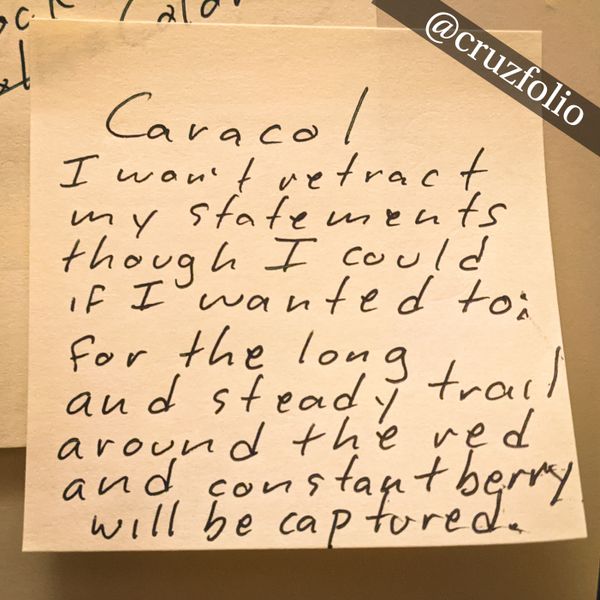 @cruzfolio
Caracol
I won't retract
my statements
though I could
if I wanted to:
for the long
and steady trail
around the red
and constant berry
will be captured.